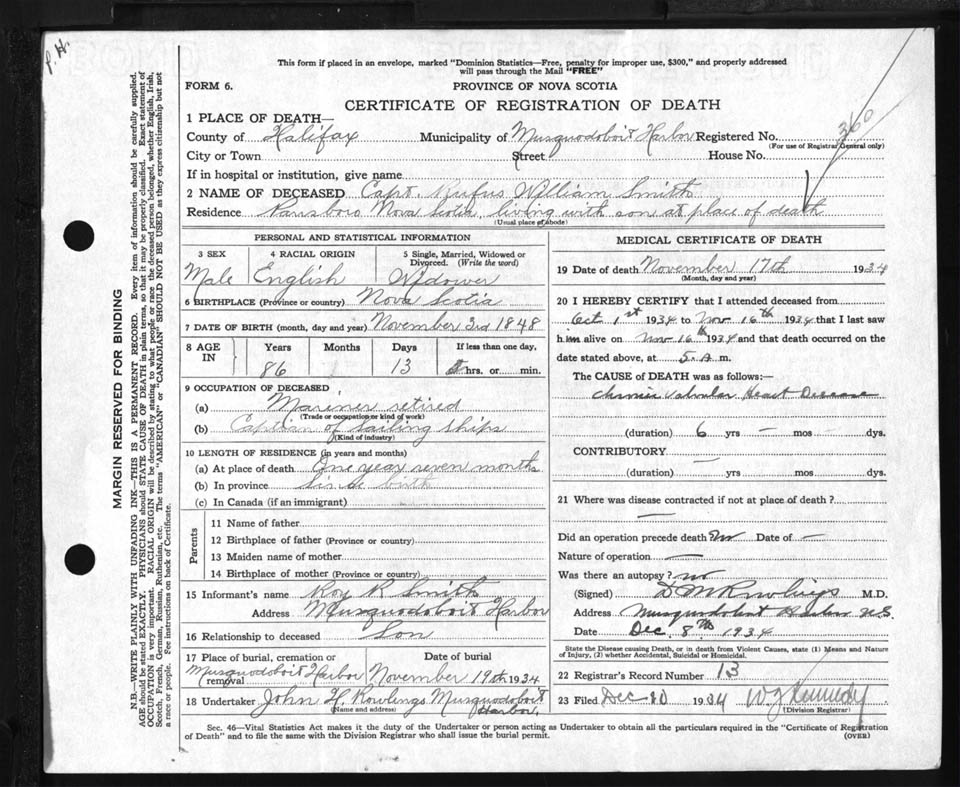 P. H.
This form if placed in an envelope, marked "Dominion Statistics—Free, penalty for improper use, $300," and properly addressed
will pass through the Mail "FREE"
FORM 6.
PROVINCE OF NOVA SCOTIA
CERTIFICATE OF REGISTRATION OF DEATH
360
1 PLACE OF DEATH—
County of Halifax Municipality of Musquodoboit Harbor Registered No.
(For use of Registrar General only)
City or Town Street House No.
If in hospital or institution, give name
2 NAME OF DECEASED Capt. Rufus William Smith
Residence Parrsboro Nova Scotia, living with son at place of death
(Usual place of abode)
PERSONAL AND STATISTICAL INFORMATION
3 SEX
Male
4 RACIAL ORIGIN
English
5 Single, Married, Widowed or
Divorced. (Write the word)
Widower
6 BIRTHPLACE (Province or country) Nova Scotia
7 DATE OF BIRTH (month, day and year) November 3rd 1848
8 AGE
IN
Years
86
Months
Days
13
If less than one day,
hrs. or min.
9 OCCUPATION OF DECEASED
(a) Mariner retired
(Trade or occupation or kind of work)
(b) Captian of sailing ships
(Kind of industry)
10 LENGTH OF RESIDENCE (in years and months)
(a) At place of death One year seven months
(b) In province Since birth
(c) In Canada (if an immigrant)
Parents
11 Name of father
12 Birthplace of father (Province or country)
13 Maiden name of mother
14 Birthplace of mother (Province or country)
15 Informant's name Roy R Smith
Address Musquodoboit Harbor
16 Relationship to deceased Son
17 Place of burial, cremation or
removal
Musquodoboit Harbor
Date of burial
November 19th 1934
18 Undertaker John H. Rowlings Musquodoboit
Harbor,
(Name and address)
MEDICAL CERTIFICATE OF DEATH
19 Date of death November 17th 1934
(Month, day and year)
20 I HEREBY CERTIFY that I attended deceased from
Oct 1st 1934 to Nov 16th 1934 that I last saw
him alive on Nov 16th 1934 and that death occurred on the
date stated above, at 5 A m.
The CAUSE of DEATH was as follows:—
Chronic Valvular Heart Disease
(duration) 6 yrs — mos dys.
CONTRIBUTORY
(duration) — yrs mos dys.
21 Where was disease contracted if not at place of death?
—
Did an operation precede death no Date of —
Nature of operation —
Was there an autopsy? no
(Signed) D M Rowlings M.D.
Address Musquodoboit Harbor N.S.
Date Dec. 8th 1934
State the Disease causing Death, or in death from Violent Causes, state (1) Means and Nature
of Injury, (2) whether Accidental, Suicidal or Homicidal.
22 Registrar's Record Number 13
23 Filed Dec 10 1934 W J Kennedy
(Division Registrar)
Sec. 46—Vital Statistics Act makes it the duty of the Undertaker or person acting as Undertaker to obtain all the particulars required in the "Certificate of Registration
of Death" and to file the same with the Division Registrar who shall issue the burial permit.
(OVER)
MARGIN RESERVED FOR BINDING
N.B.—WRITE PLAINLY WITH UNFADING INK—THIS IS A PERMANENT RECORD. Every item of information should be carefully supplied.
AGE should be stated EXACTLY. PHYSICIANS should STATE CAUSE OF DEATH in plain terms, so that it may be properly classified. Exact statement of
OCCUPATION is very important. RACIAL ORIGIN will be described by stating to what people or race the deceased person belonged, whether English, Irish,
Scotch, French, German, Russian, Ruthenian, etc. The terms "AMERICAN" or "CANADIAN" SHOULD NOT BE USED as they express citizenship but not
a race or people. See instructions on back of Certificate.